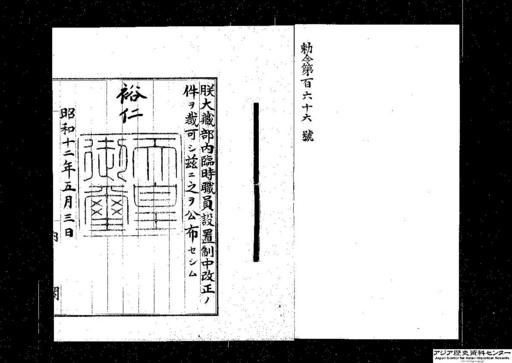 勅令第百六十六號
朕大藏部内臨時職員設置制中改正ノ
件ヲ裁可シ茲ニ之ヲ公布セシム
裕仁
天皇
御璽
昭和十二年五月三日
内
閣
アジア歴史資料センター
Japan Center for Asian Historical Records